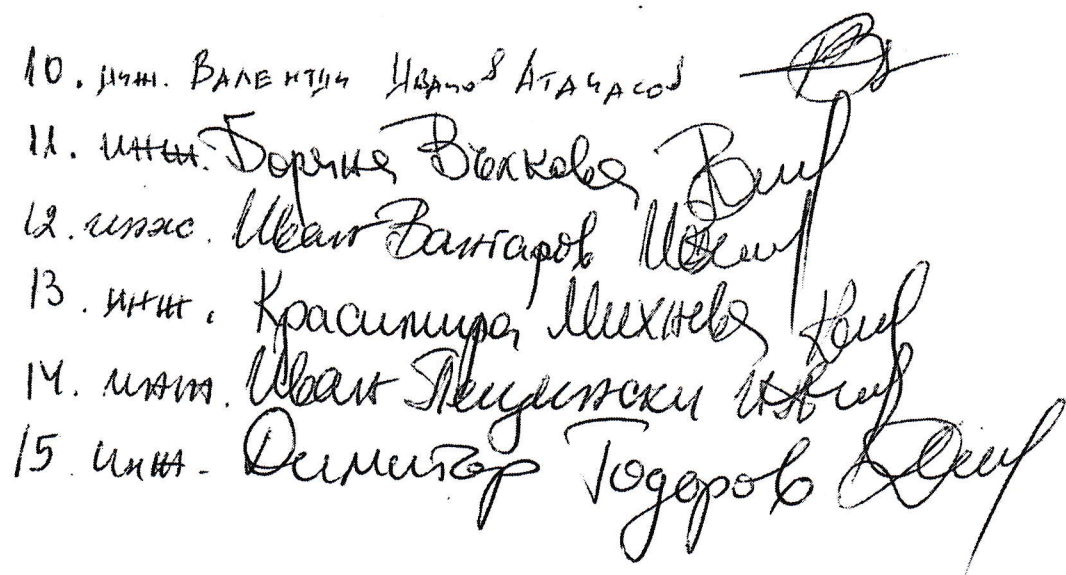 10. инж. Валентин Иванов Атанасов
11. инж. Боряна Вълкова
12. инж. Иван Вантаров
13. инж. Красимира Михнева
14. инж. Иван
15. инж. Димитър Тодоров